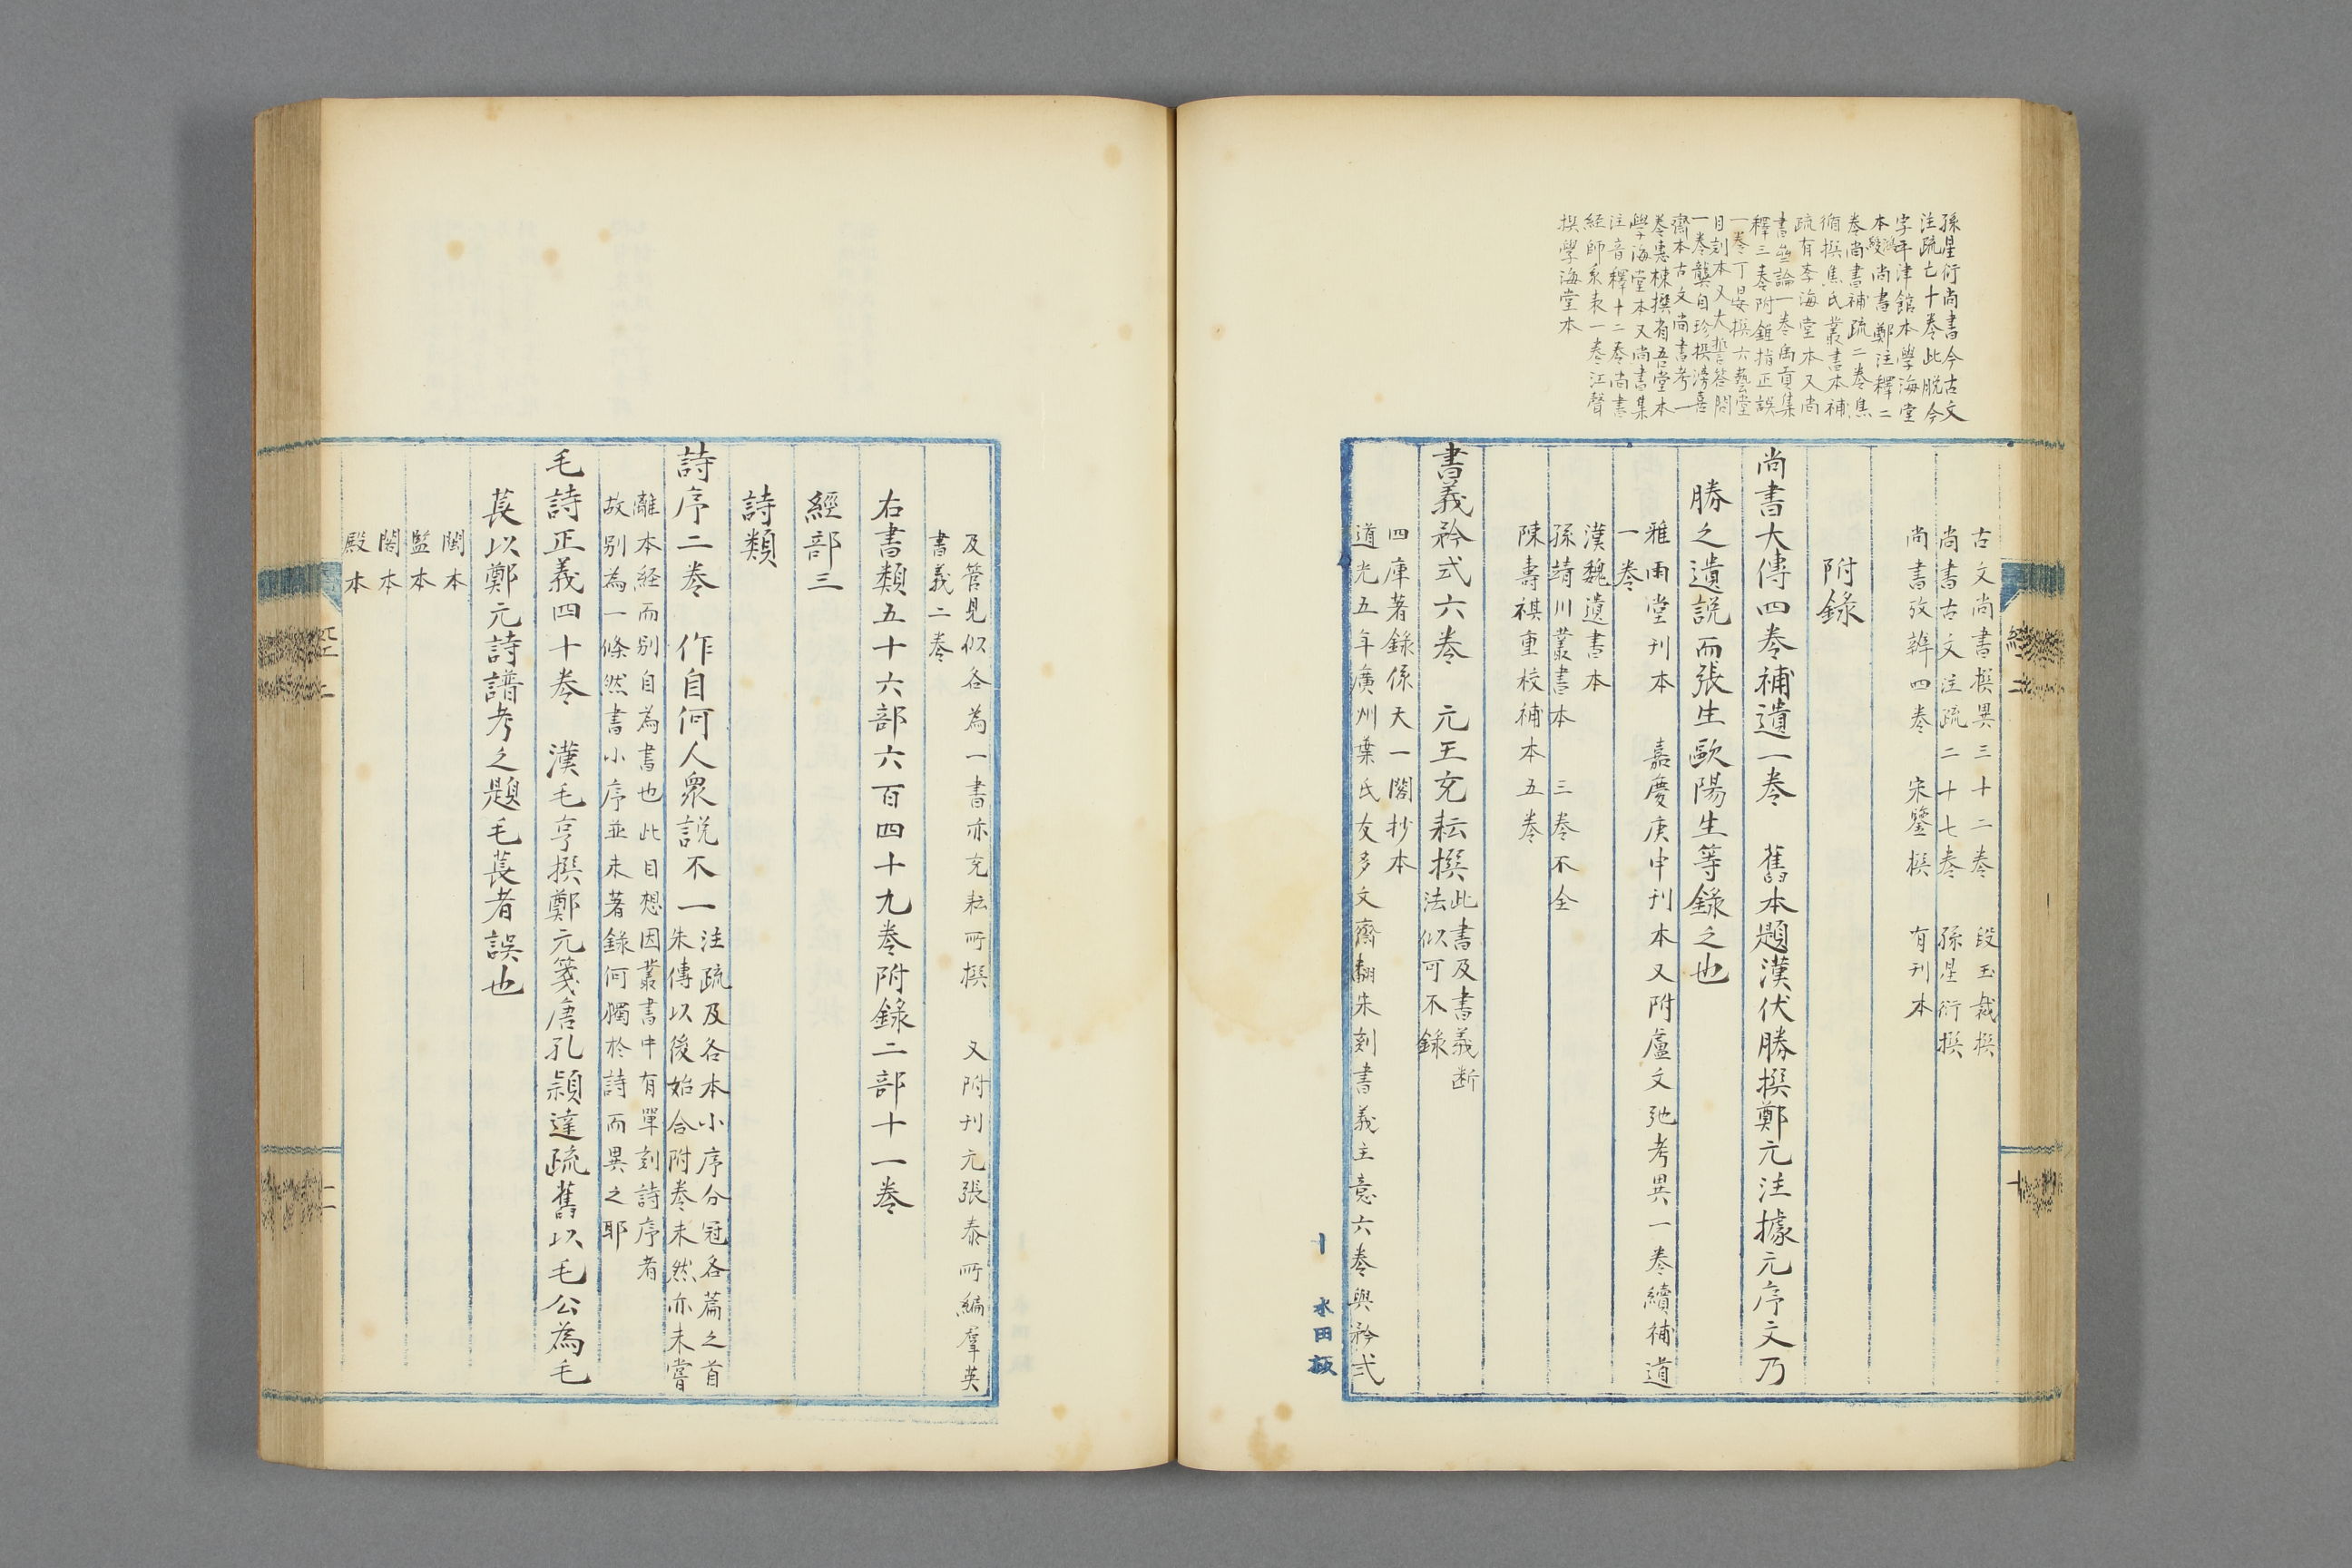 孫星衍尚書今古文
注疏亡十卷此脱今
字平津館本學海堂
本尚書鄭注釋二
卷尚書補疏二卷焦
循撰焦氏叢書本補
疏有李海堂本又尚
書逸論一卷禹貢集
釋三卷附錐指正誤
一卷丁晏撰六藝堂
自刻本又大誓答問
一卷龔自珍撰滂喜
齋本古文尚書考一
卷惠棟撰省吾堂本
學海堂本又尚書集
注音釋十二卷尚書
經師系表一卷江聲
撰學海堂本
古文尚書撰異三十二卷 段玉裁撰
尚書古文注疏二十七卷 孫星衍撰
尚書攷辨四卷 宋鑒撰 有刊本
附錄
尚書大傳四卷補遺一卷 舊本題漢伏勝撰鄭元注據元序文乃
勝之遺説而張生歐陽生等錄之也
雅雨堂刊本 嘉慶庚申刊本又附盧文弨考異一卷續補遺
一卷
漢魏遺書本
孫晴川叢書本 三卷不全
陳壽祺重校補本五卷
書義矜式六卷 元王充耘撰此書及書義断
法似可不錄
四庫著錄係天一閣抄本
道光五年漢州葉氏友多文齋翻朱刻書義主意六卷與矜式
及管見似各為一書亦充耘所撰 又附刊元張泰所編羣英
書義二卷
右書類五十六部六百四十九卷附錄二部十一卷
經部三
詩類
詩序二卷 作自何人衆説不一注疏及各本小序分冠各篇之首
朱傳以後始合附卷末然亦未嘗
離本經而别自為書也此目想因叢書中有單刻詩序者
故别為一條然書小序並未著錄何獨於詩而異之耶
毛詩正義四十卷 漢毛亨撰鄭元箋唐孔穎達疏舊以毛公為毛
萇以鄭元詩譜考之題毛萇者誤也
閩本
監本
閣本
殿本
永田板